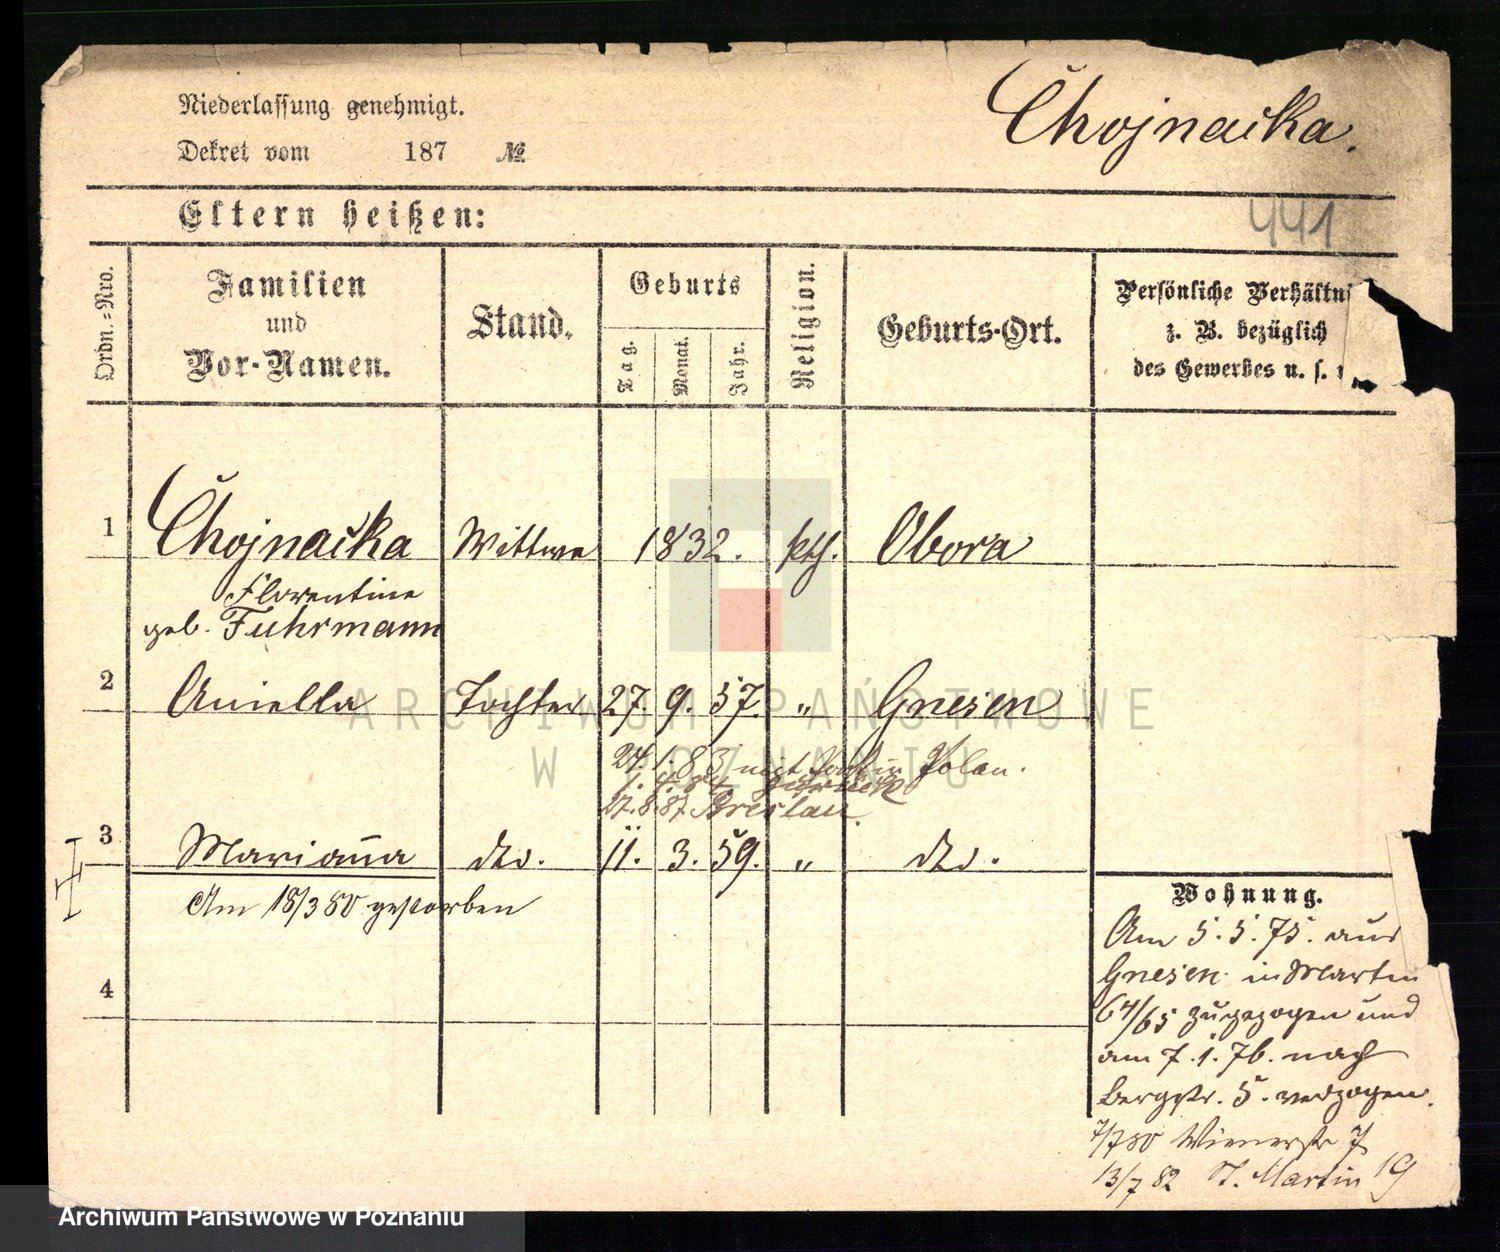 Niederlassung genehmigt.
Dekret vom 187 №
Chojnacka.
Eltern heißen:
441
Ordn.=Nro.
Familien
und
Vor-Namen.
Stand.
Geburts
Tag.
Monat.
Jahr.
Religion.
Geburts-Ort.
Persönliche Verhältni
z. B. bezüglich
des Gewerbes u. s.
1 Chojnacka Wittwe 1832. kth. Obora
Florentine
geb. Fuhrmann
2 Aniella Tochter 27. 9. 57. " Gnesen
24. 1. 83 nach Polen.
1. 4. 84 zurück
27. 8. 87. Breslau.
3 Marianna dto. 11. 3. 59. " dto.
Am 18/3 80 gestorben
4
Wohnung.
Am 5. 5. 75. aus
Gnesen in Martin
64/65 zugezogen und
am 7. 1. 76. nach
Bergstr. 5. verzogen.
7/7 80 Wienerstr 7
13/7 82 St. Martin 19
ARCHIWUM PAŃSTWOWE
W POZNANIU
Archiwum Państwowe w Poznaniu